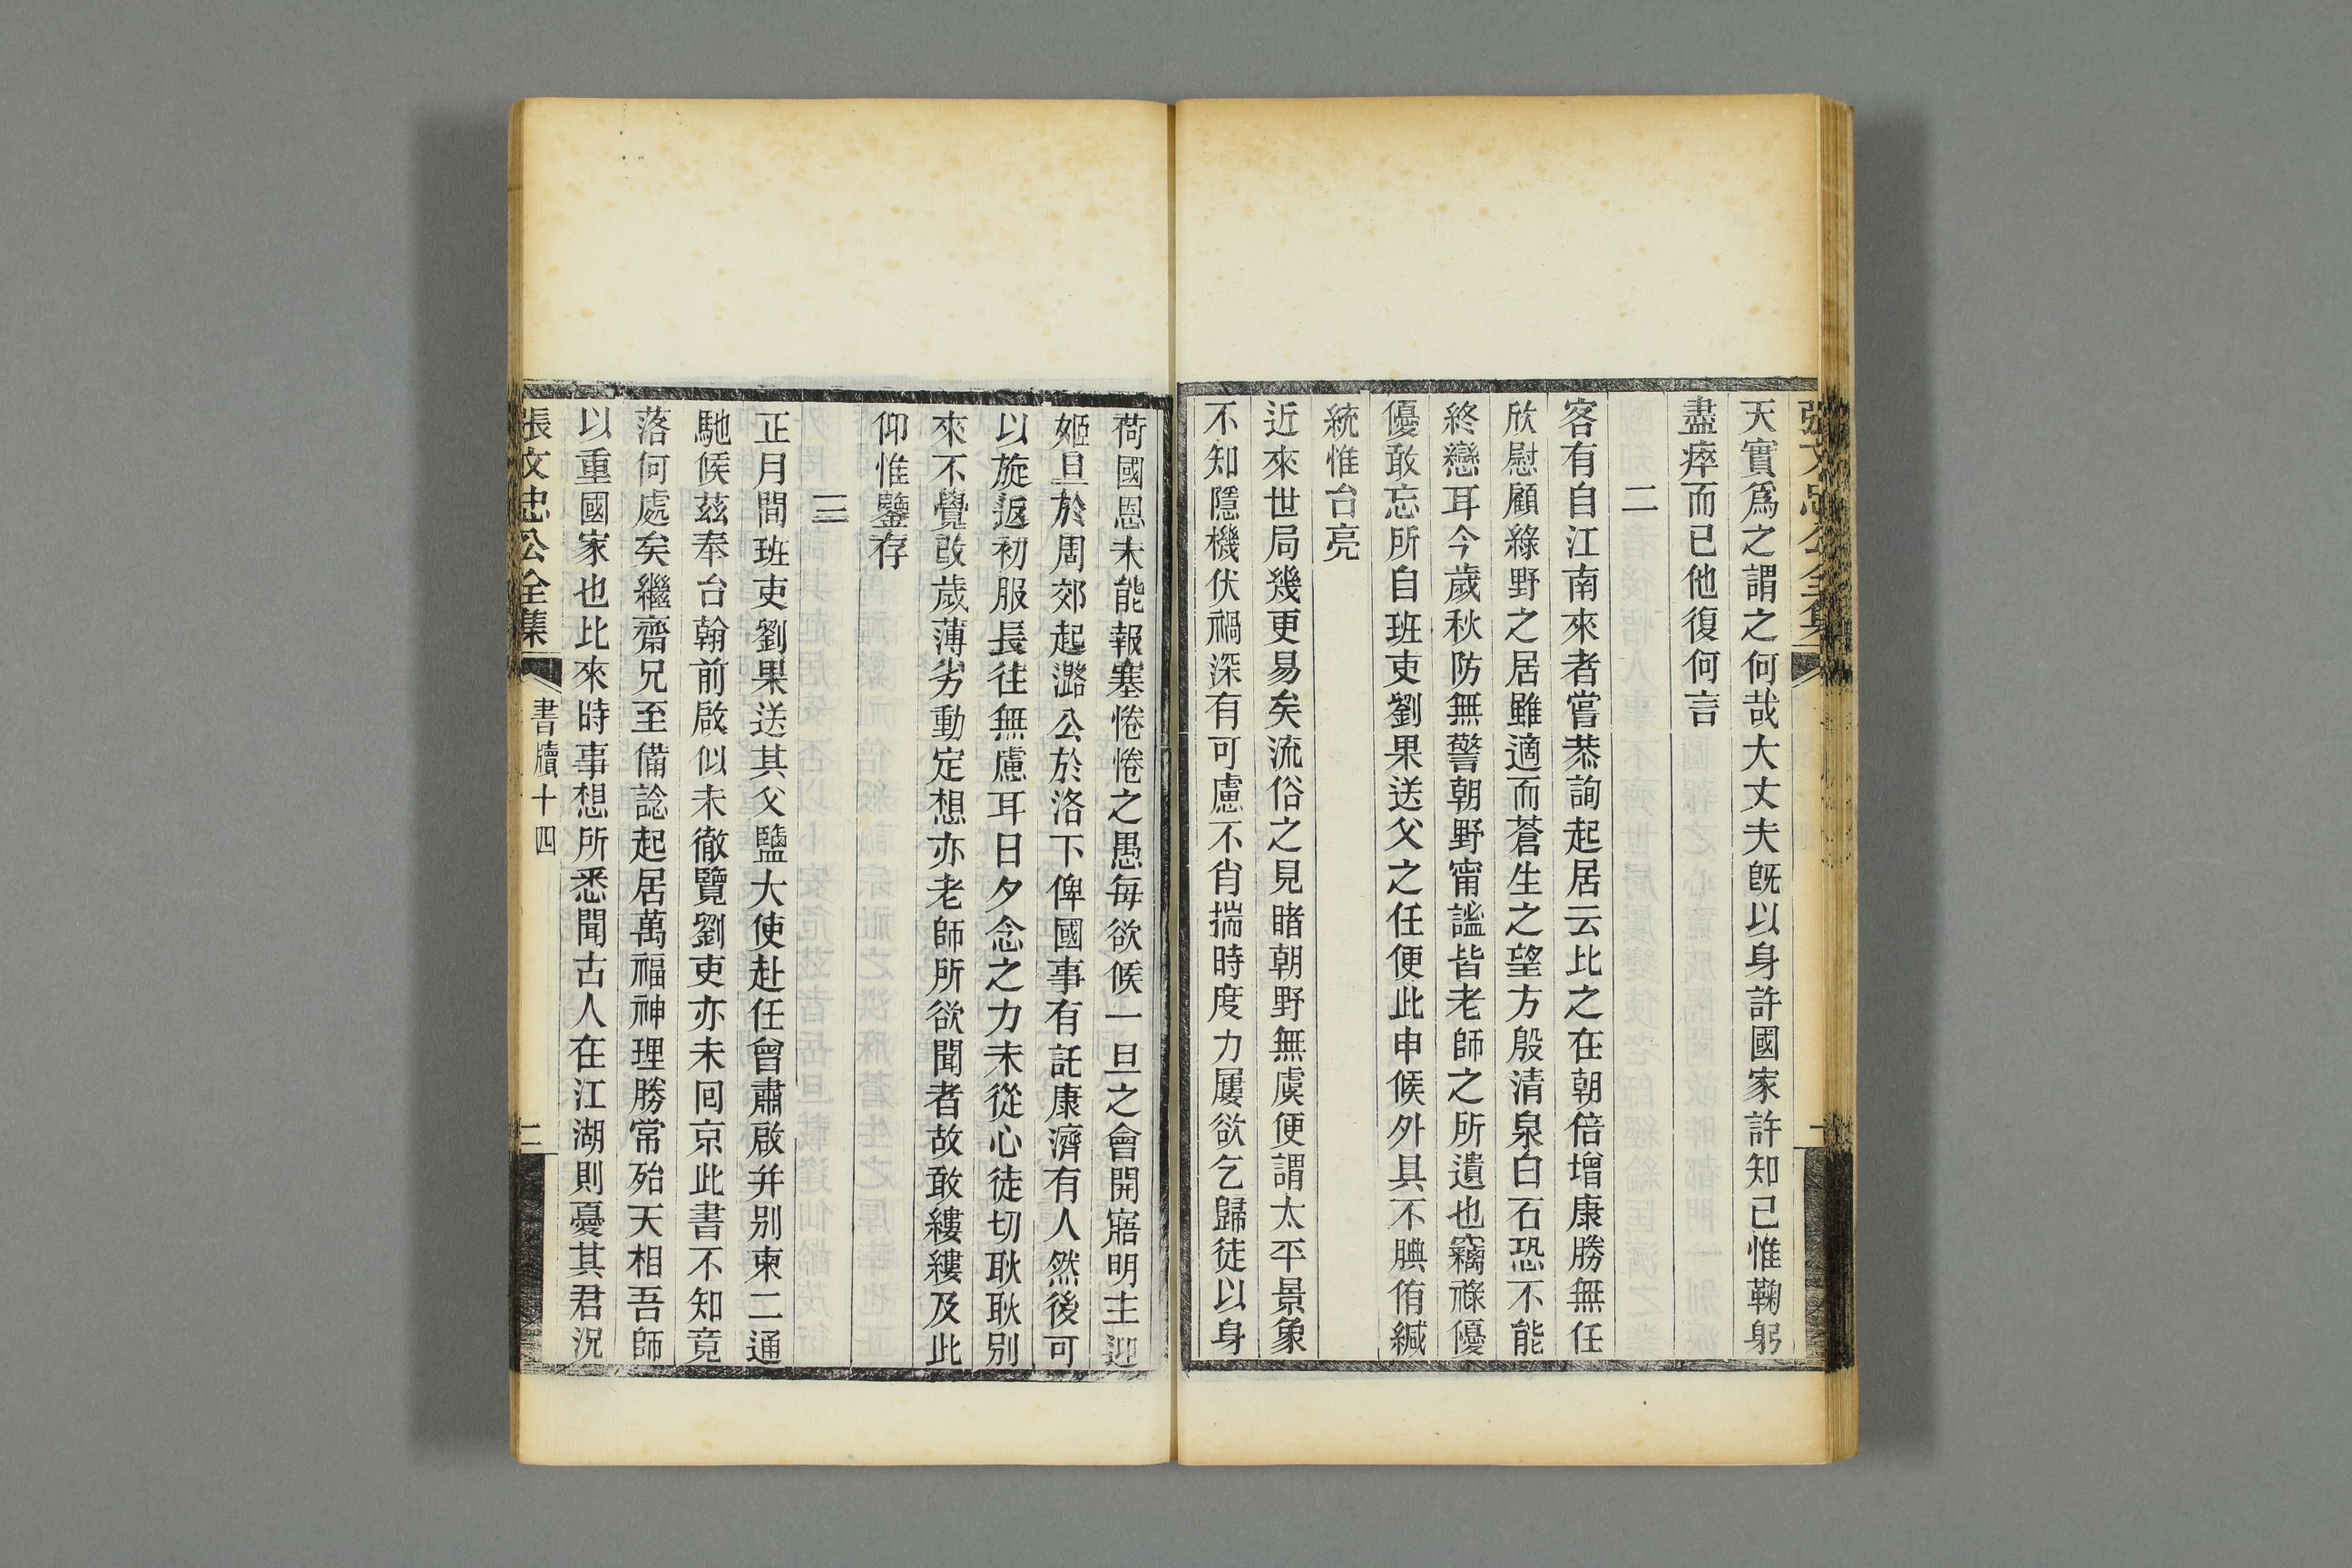 張文忠公全集
一
天實爲之謂之何哉大丈夫旣以身許國家許知己惟鞠躬
盡瘁而已他復何言
二
客有自江南來者嘗恭詢起居云比之在朝倍增康勝無任
欣慰顧綠野之居雖適而蒼生之望方殷清泉白石恐不能
終戀耳今歲秋防無警朝野甯謐皆老師之所遺也竊祿優
優敢忘所自班吏劉果送父之任便此申候外具不腆侑緘
統惟台亮
近來世局幾更易矣流俗之見睹朝野無虞便謂太平景象
不知隱機伏禍深有可慮不肖揣時度力屢欲乞歸徒以身
荷國恩未能報塞惓惓之愚每欲候一旦之會開寤明主迎
姬旦於周郊起潞公於洛下俾國事有託康濟有人然後可
以旋返初服長往無慮耳日夕念之力未從心徒切耿耿别
來不覺改歲薄劣動定想亦老師所欲聞者故敢縷縷及此
仰惟鑒存
三
正月間班吏劉果送其父鹽大使赴任曾肅啟并别柬二通
馳候茲奉台翰前啟似未徹覽劉吏亦未囘京此書不知竟
落何處矣繼齋兄至備諗起居萬福神理勝常殆天相吾師
以重國家也比來時事想所悉聞古人在江湖則憂其君況
張文忠公全集
書牘十四
二